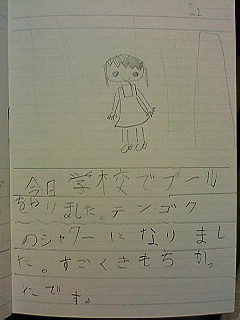 今日学校でプール
をやりました。テンゴク
のシャワーになりまし
た。すごくきもちかっ
たです。